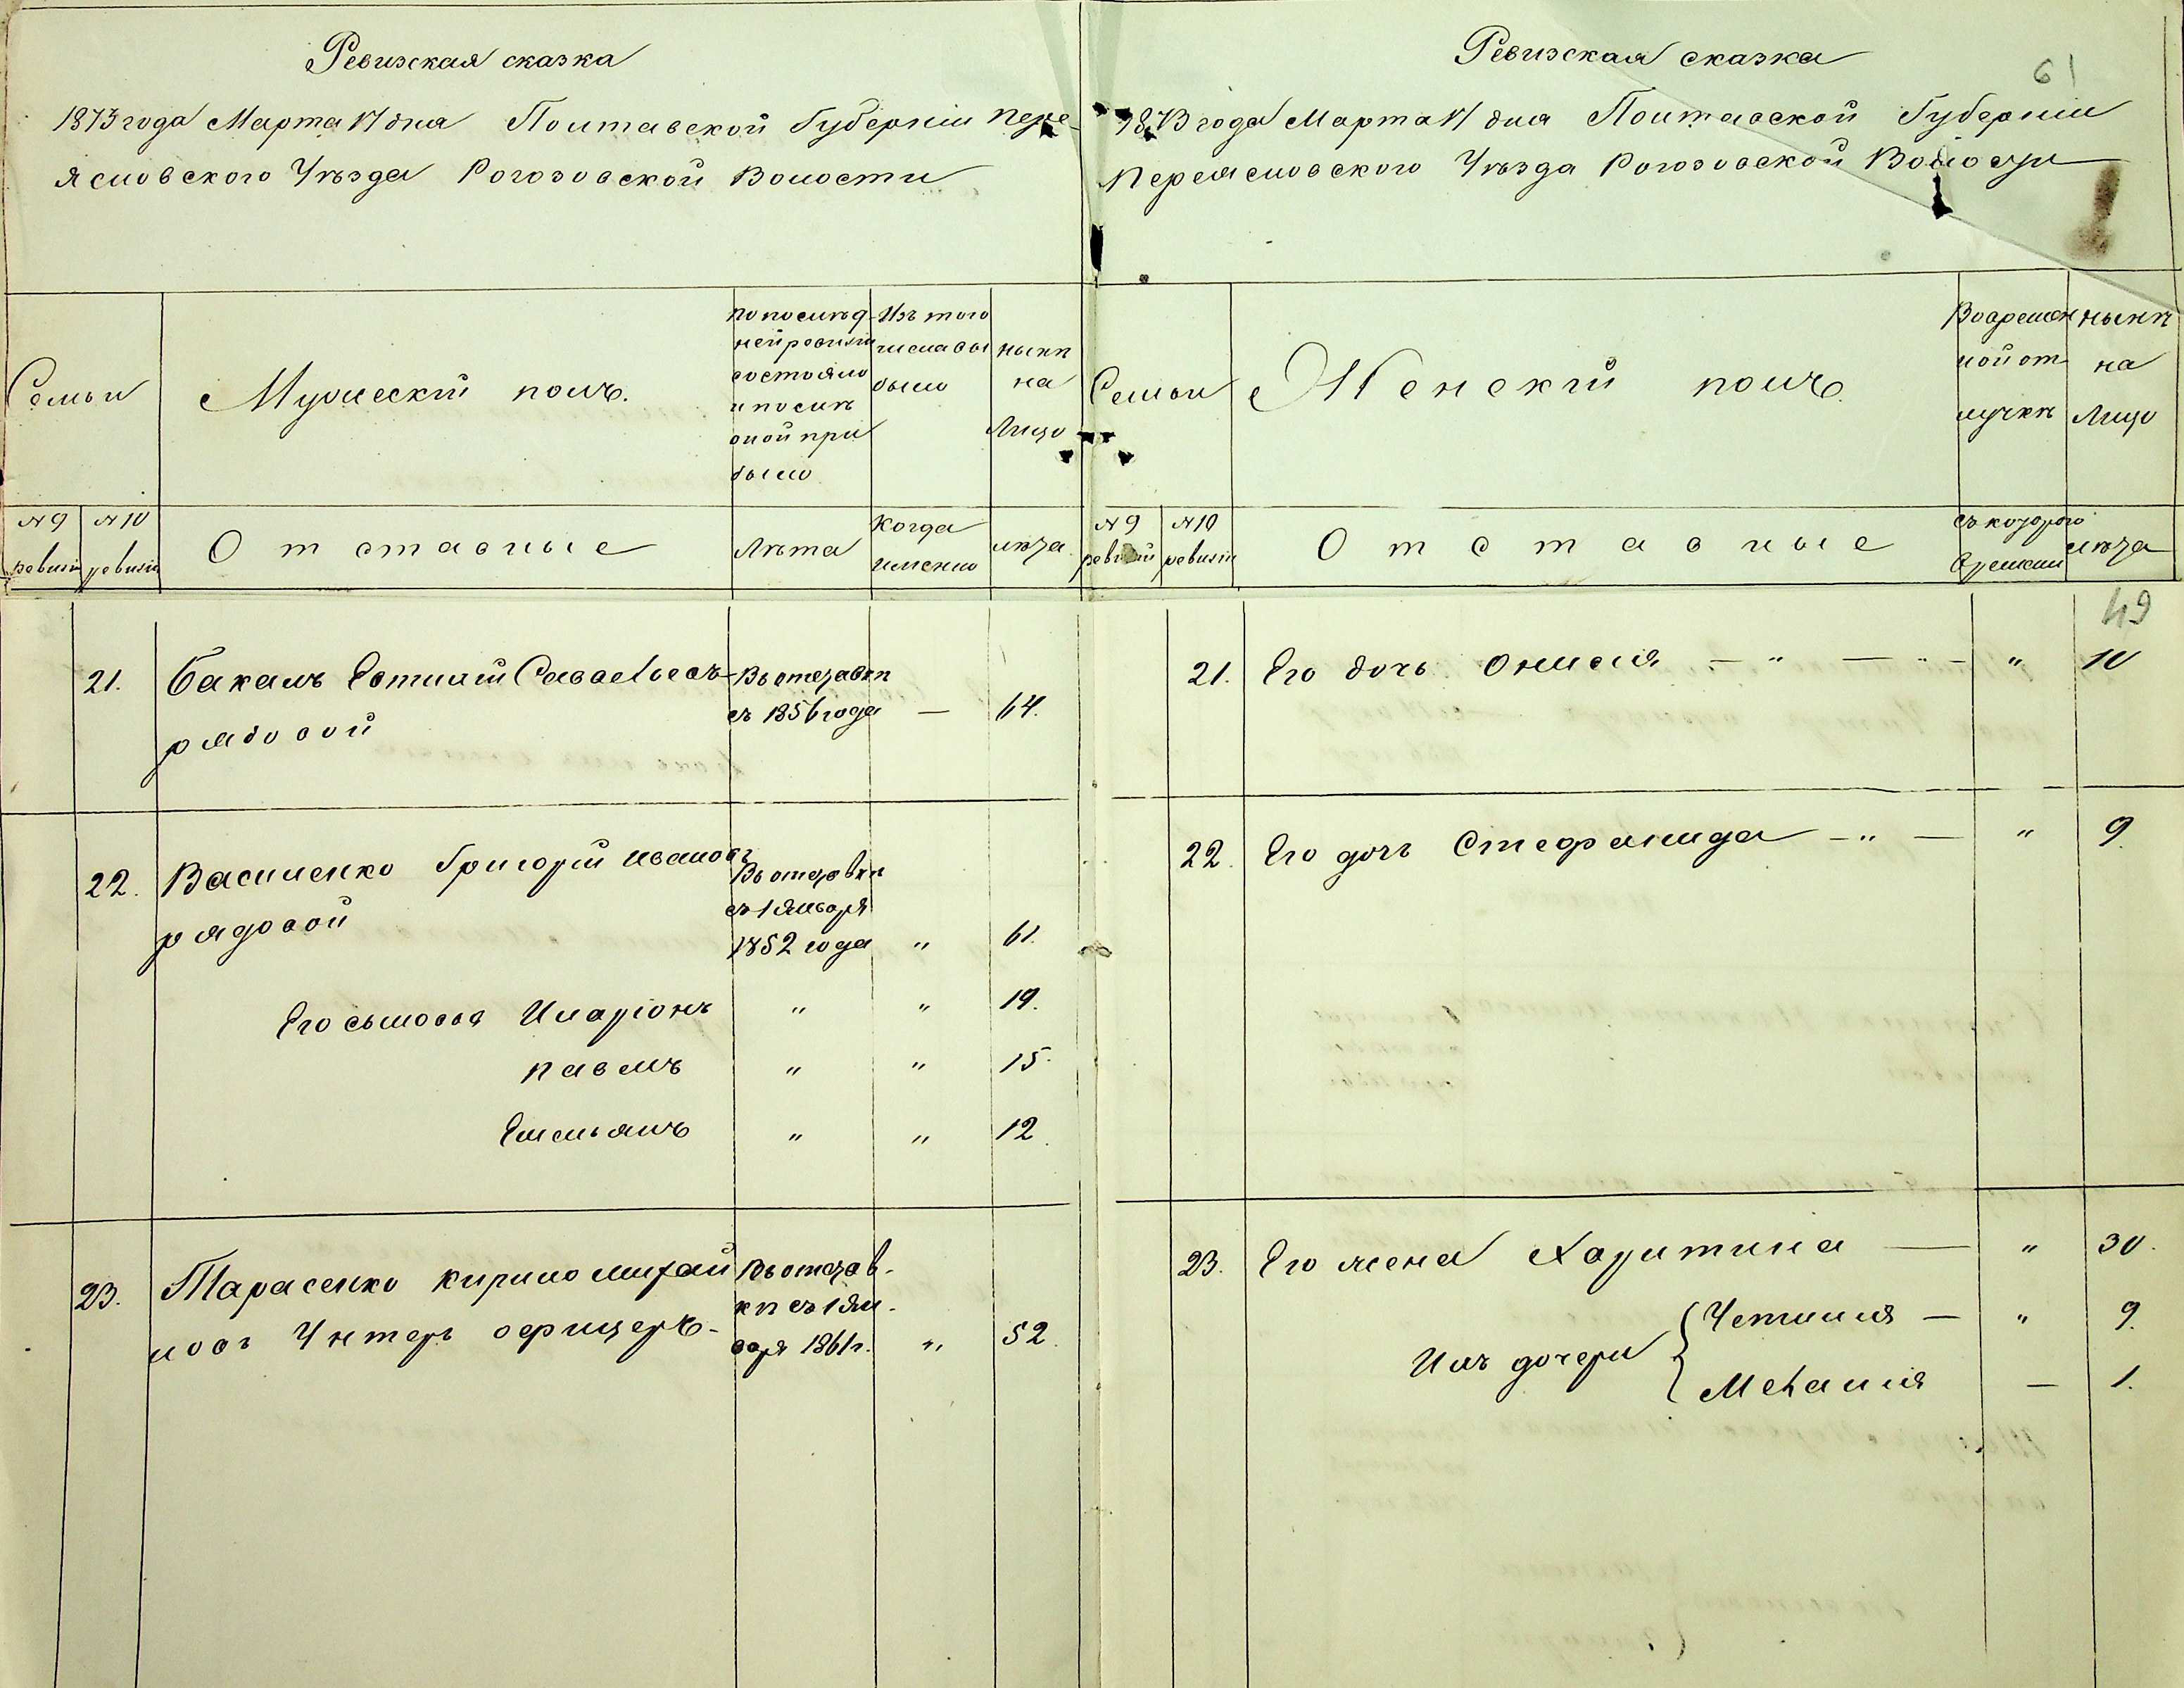 Ревизская сказка
1873 года Марта 17 дня Полтавской Губерніи Пере-
яславского Уѣзда Рогозовской Волости
Семьи
Мужескій полъ.
по послѣд-
ней ревизіи
состояло
и послѣ
оной при
было
Изъ того
числа вы
было
нынѣ
на
Лицо
№ 9
ревизіи
№ 10
ревизіи
Отставные
Лѣта
Когда
именно
лѣта
21.
Бакалъ Евтихій Савельевъ
рядовой
Въ отставкѣ
съ 1856 года
—
64.
22.
Василенко Григорій Ивановъ
рядовой
Въ отставкѣ
съ 1 Января
1852 года
"
61.
Его сыновья Иларіонъ " " 19.
Павелъ " " 15.
Емельянъ " " 12.
23.
Тарасенко Кирило Михай
ловъ Унтеръ офицеръ-
Въ отстав-
кѣ съ 1 Ян-
варя 1861 г.
"
52.
61
Ревизская сказка
1873 года Марта 17 дня Полтавской Губерніи
Переяславского Уѣзда Рогозовской Волости
Семьи
Женскій полъ
Во времен
ной от
лучкѣ
нынѣ
на
Лицо
№ 9
ревизіи
№ 10
ревизіи
Отставные
съ которого
времени
лѣта
49
21. Его дочь Онисія — " — " — " 10
22. Его дочь Стефанида — " — " 9.
23. Его жена Харитина — " 30.
Ихъ дочери
Устинія — " 9.
Меланія — 1.